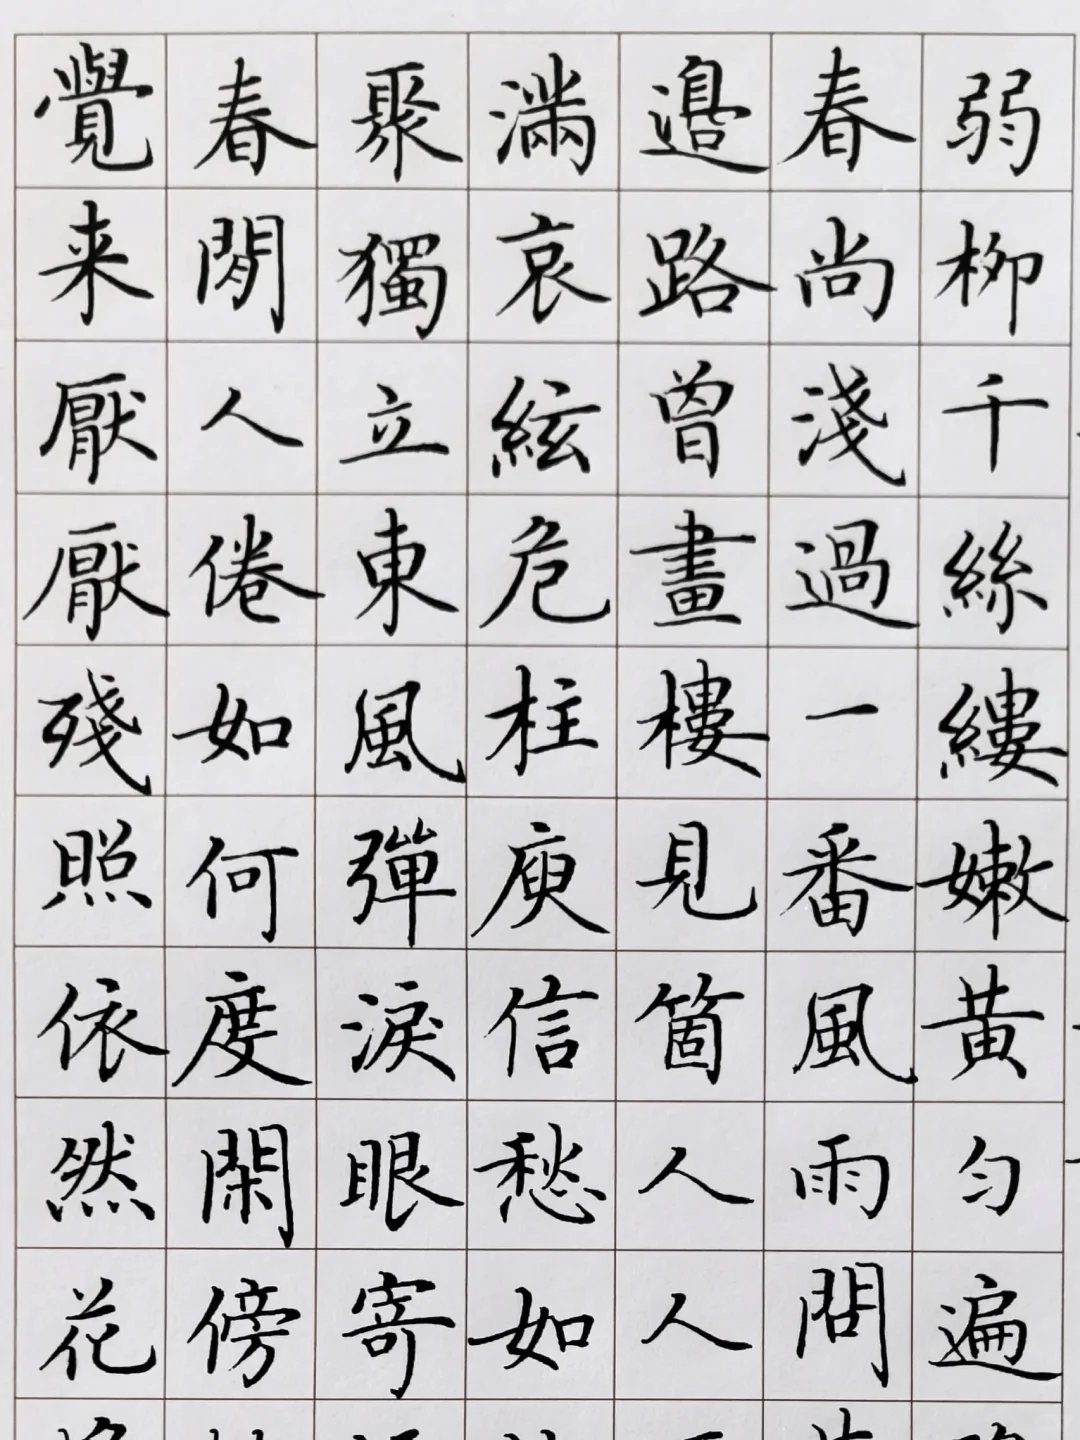 弱柳千絲縷嫩黃勻遍
春尚淺過一番風雨問
邉路曾畫樓見箇人人
滿哀絃危柱庾信愁如
聚獨立東風彈淚眼寄
春閒人倦如何度閑傍
覺来厭厭殘照依然花